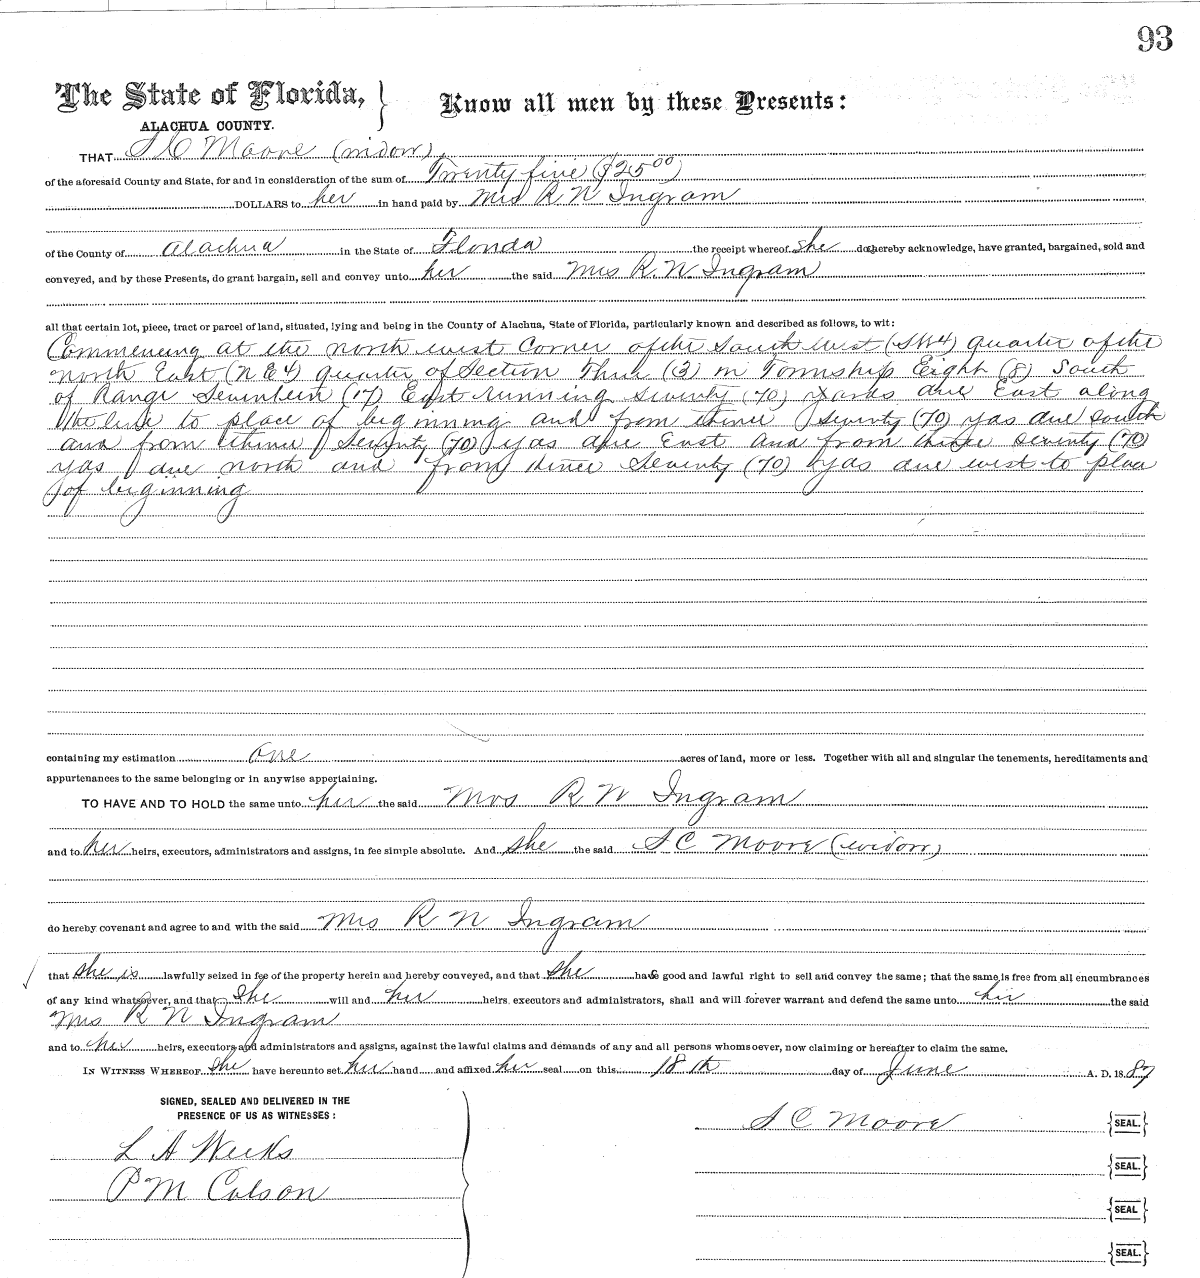 93
The State of Florida,
ALACHUA COUNTY.
Know all men by these Presents:
THAT S C Moore (widow),
of the aforesaid County and State, for and in consideration of the sum of Twenty five ($25 00)
DOLLARS to her in hand paid by Mrs R N Ingram
of the County of Alachua in the State of Florida the receipt whereof she does hereby acknowledge, have granted, bargained, sold and
conveyed, and by these Presents, do grant bargain, sell and convey unto her the said Mrs R. N Ingram
all that certain lot, piece, tract or parcel of land, situated, lying and being in the County of Alachua, State of Florida, particularly known and described as follows, to wit:
Commencing at the north west Corner of the South West (SW4) quarter of the
north East (NE4) quarter of Section Three (3) in Township Eight (8) South
of Range Seventeen (17) East running Seventy (70) yards due East along
the line to place of beginning and from thence seventy (70) yds due south
and from thence Seventy (70) yds due East and from thence seventy (70)
yds due north and from thence Seventy (70) yds due west to place
of beginning
containing my estimation one acres of land, more or less. Together with all and singular the tenements, hereditaments and
appurtenances to the same belonging or in anywise appertaining.
TO HAVE AND TO HOLD the same unto her the said Mrs R N Ingram
and to her heirs, executors, administrators and assigns, in fee simple absolute. And she the said S C Moore (widow)
do hereby covenant and agree to and with the said Mrs R N Ingram
that she is lawfully seized in fee of the property herein and hereby conveyed, and that she has good and lawful right to sell and convey the same; that the same is free from all encumbrances
of any kind whatsoever, and that she will and her heirs, executors and administrators, shall and will forever warrant and defend the same unto her the said
Mrs R N Ingram
and to her heirs, executors and administrators and assigns, against the lawful claims and demands of any and all persons whomsoever, now claiming or hereafter to claim the same.
IN WITNESS WHEREOF, she have hereunto set her hand and affixed her seal on this 18th day of June A. D. 1887
SIGNED, SEALED AND DELIVERED IN THE
PRESENCE OF US AS WITNESSES:
L A Weeks
P M Colson
S C Moore {SEAL.}
{SEAL.}
{SEAL}
{SEAL.}